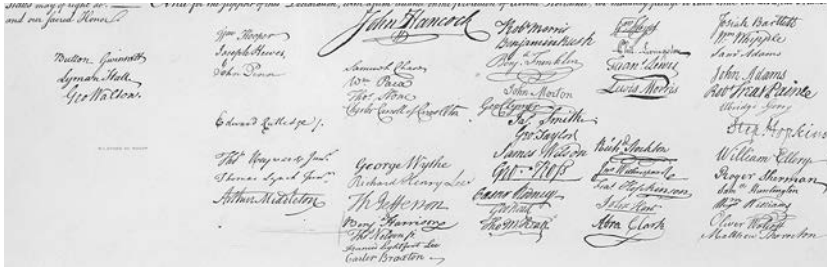 and our sacred Honor.
Button Gwinnett
Lyman Hall
Geo Walton.
Wm Hooper
Joseph Hewes,
John Penn
Edward Rutledge /.
Thos Heyward Junr.
Thomas Lynch Junr.
Arthur Middleton
John Hancock
Samuel Chase
Wm Paca
Thos. Stone
Charles Carroll of Carrollton
George Wythe
Richard Henry Lee
Th Jefferson
Benj Harrison
Thos Nelson jr.
Francis Lightfoot Lee
Carter Braxton
Robt Morris
Benjamin Rush
Benj. Franklin
John Morton
Geo Clymer
Jas. Smith
Geo. Taylor
James Wilson
Geo. Ross
Caesar Rodney
Geo Read
Tho M:Kean
Wm Floyd
Phil. Livingston
Frans. Lewis
Lewis Morris
Richd. Stockton
Jno Witherspoon
Fras. Hopkinson
John Hart
Abra Clark
Josiah Bartlett
Wm. Whipple
Saml Adams
John Adams
Robt Treat Paine
Elbridge Gerry
Step. Hopkins
William Ellery
Roger Sherman
Saml. Huntington
Wm. Williams
Oliver Wolcott
Matthew Thornton